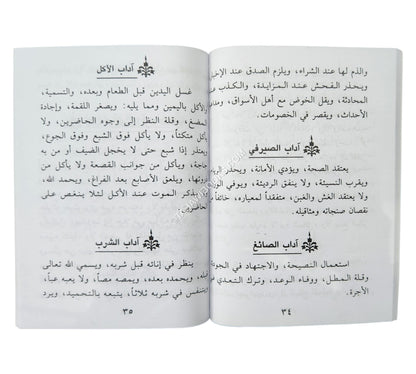 والذم لها عند الشراء، ويلزم الصدق عند الإخبار
ويحذر الفحش عند المزايدة، والكذب في
المحادثة، ويقل الخوض مع أهل الأسواق،
الأحداث، ويقصر في الخصومات.
آداب الصيرفي
يعتقد الصحة، ويؤدي الأمانة، ويحذر
ويقرب النسيئة، ولا ينفق الرديئة، ويوفي
ولا يعتقد الغش والغبن، متفقداً لمعياره، خائفاً
نقصان صنجاته ومثاقيله.
آداب الصائغ
استعمال النصيحة، والاجتهاد في الجودة
وقلة المطل، ووفاء الوعد، وترك التعدي في
الأجرة.
٣٤
آداب الأكل
غسل اليدين قبل الطعام وبعده، والتسمية،
والأكل باليمين ومما يليه: ويصغر اللقمة، وإجادة
المضغ، وقلة النظر إلى وجوه الحاضرين، ولا
يأكل متكئاً، ولا يأكل فوق الشبع وفوق الجوع،
ويعتذر إذا شبع حتى لا يخجل الضيف أو من به
حاجة، ويأكل من جوانب القصعة ولا يأكل من
ذروتها، ويلعق الأصابع بعد الفراغ، وحمد الله، ولا
يذكر الموت عند الأكل لئلا ينغص على
الحاضرين.
آداب الشرب
ينظر في إنائه قبل شربه، ويسمي الله تعالى
قبله، ويحمده بعده، ويمصه مصاً، ولا يعبه عباً،
ويتنفس في شربه ثلاثاً، يتبعه بالتحميد، ويرد
٣٥